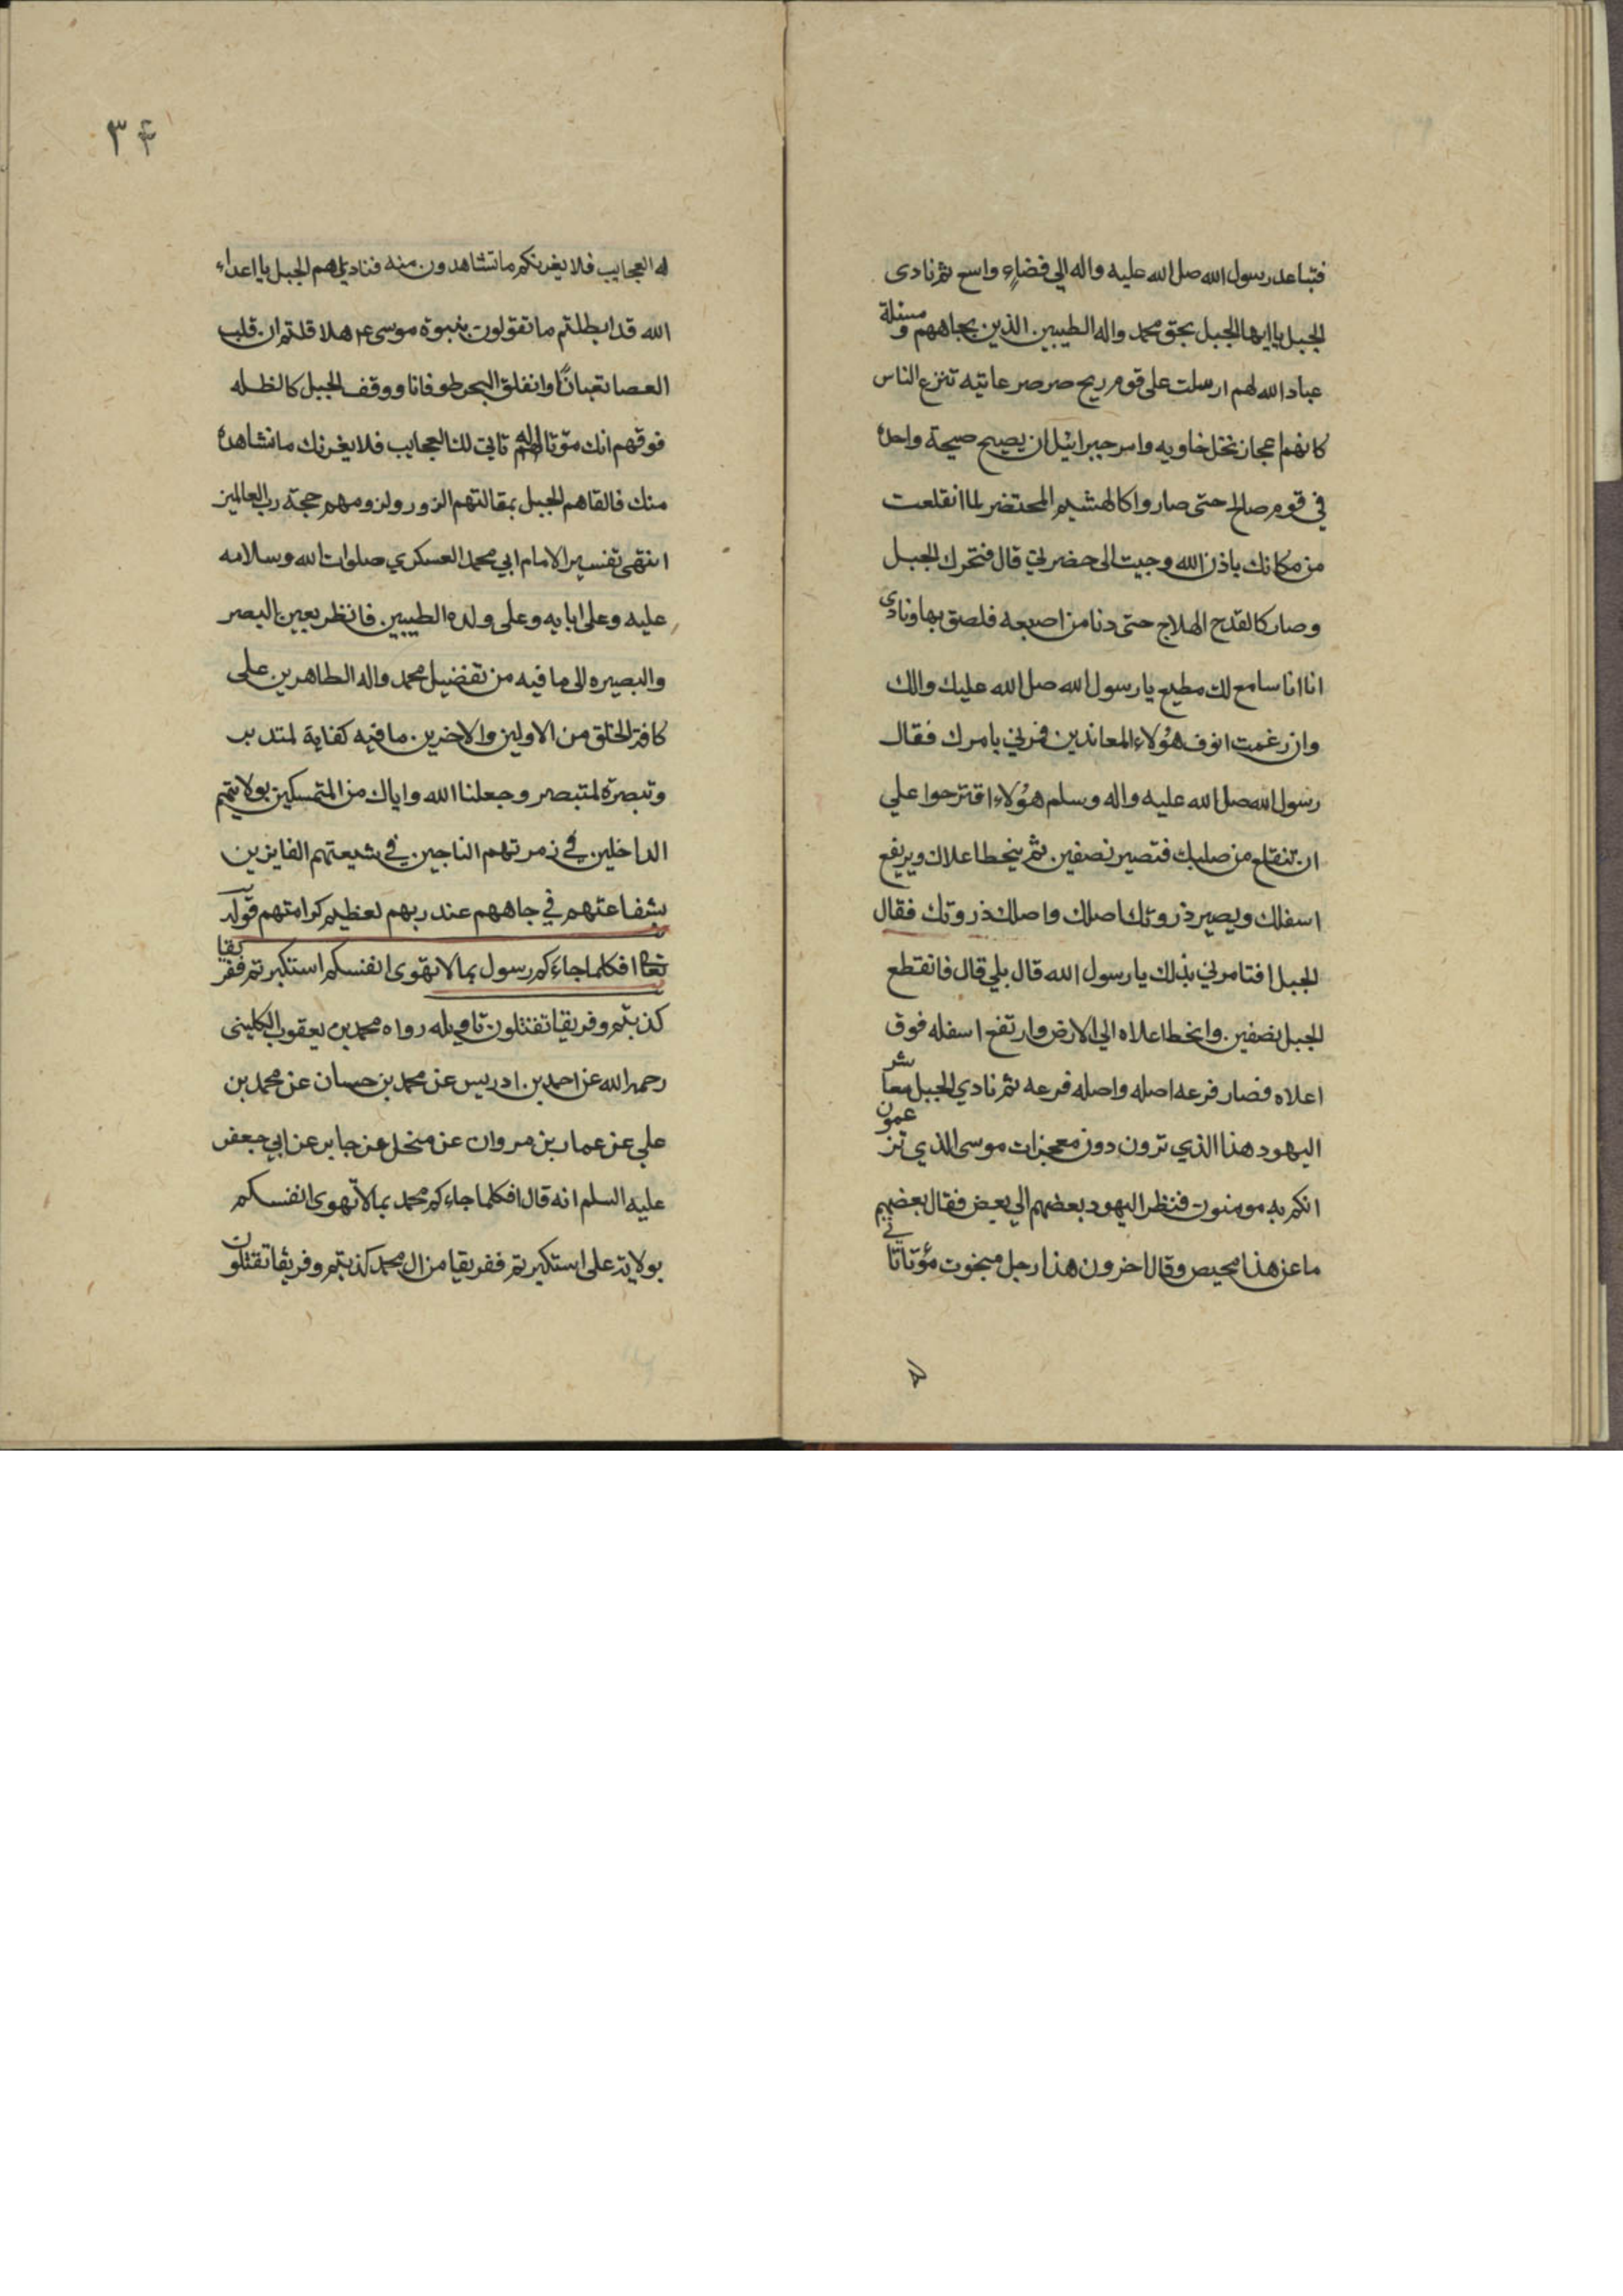 فتباعد رسول الله صل الله عليه واله الي فضاءٍ واسع ثم نادى
الجبل يا ايها الجبل بحق محمد واله الطيبين الذين بجاههم ومسئلة
عباد الله لهم ارسلت على قوم ريح صرصر عاتيه تنزع الناس
كانهم اعجاز نخل خاويه وامر جبرائيل ان يصيح صيحة واحدة
في قوم صالح حتى صاروا كالهشيم المحتضر لما انقلعت
من مكانك باذن الله وجيت الى حضرتي قال فتحرك الجبل
وصار كالقدح الهلاج حتى دنا من اصبعه فلصق بها ونادى
انا انا سامع لك مطيع يا رسول الله صل الله عليك والك
وان رغمت انوف هؤلاء المعاندين فمرني بامرك فقال
رسول الله صل الله عليه واله وسلم هؤلاء اقترحوا علي
ان تنقلع من صلبك فتصير نصفين ثم ينحط اعلاك ويرتفع
اسفلك ويصير ذروتك اصلك واصلك ذروتك فقال
الجبل افتامرني بذلك يا رسول الله قال بلي قال فانقطع
الجبل نصفين وانحط اعلاه الي الارض وارتفع اسفله فوق
اعلاه فصار فرعه اصله واصله فرعه ثم نادي الجبل معاشر
اليهود هذا الذي ترون دون معجزات موسى الذي تزعمون
انكم به مومنون فنظر اليهود بعضهم الي بعض فقال بعضهم
ما عن هذا محيص وقال اخرون هذا رجل مبخوت مؤتا تاتي
۳۴
له العجايب فلا يغرنكم ما تشاهدون منه فناديهم الجبل يا اعداء
الله قد ابطلتم ما تقولون بنبوة موسى ع هلا قلتم ان قلب
العصا ثعبانًا وانفلق البحر طوفانا ووقف الجبل كالظله
فوقهم انك مؤتا تاتي لك العجايب فلا يغرنك ما نشاهده
منك فالقاهم الجبل بمقالتهم الزور ولزومهم حجة رب العالمين
انتهى تفسير الامام ابي محمد العسكري صلوات الله وسلامه
عليه وعلى ابايه وعلى ولده الطيبين فانظر بعين البصر
والبصيره الى ما فيه من تفضيل محمد واله الطاهرين على
كافة الخلق من الاولين والاخرين ما فيه كفاية لمتدبر
وتبصرة لمتبصر وجعلنا الله واياك من المتمسكين بولايتهم
الداخلين في زمرتهم الناجين في شيعتهم الفايزين
بشفاعتهم في جاههم عند ربهم لعظيم كرامتهم قوله
تعالى افكلما جاءكم رسول بما لا تهوى انفسكم استكبرتم ففريقا
كذبتم وفريقا تقتلون تاويله رواه محمد بن يعقوب الكليني
رحمه الله عن احمد بن ادريس عن محمد بن حسان عن محمد بن
علي عن عمار بن مروان عن منخل عن جابر عن ابي جعفر
عليه السلم انه قال افكلما جاءكم محمد بما لا تهوى انفسكم
بولاية على استكبرتم ففريقا من ال محمد كذبتم وفريقا تقتلون